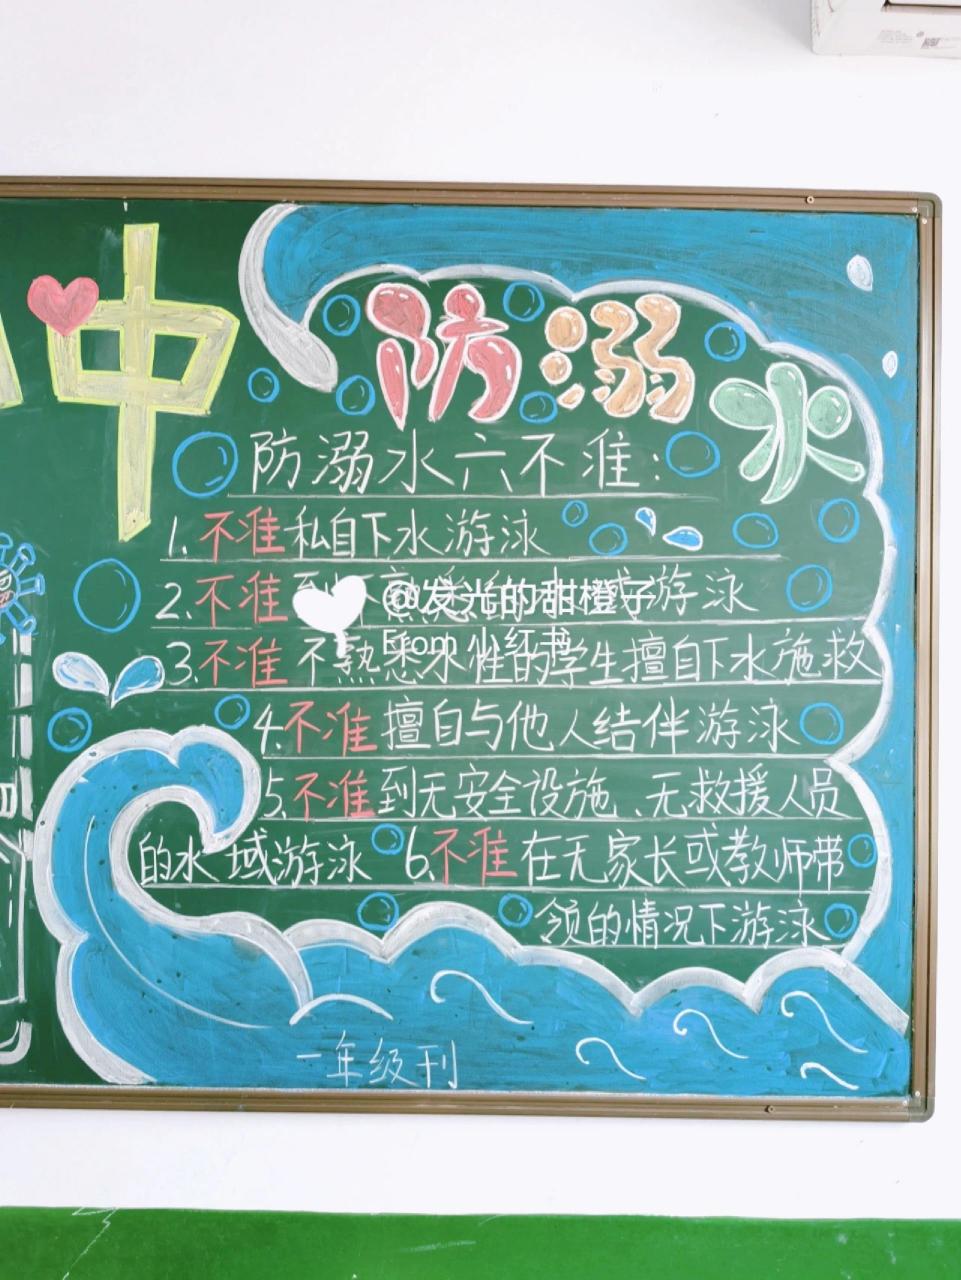 中
防溺水
防溺水六不准:
1.不准私自下水游泳
2.不准到不熟悉的水域游泳
@发光的甜橙子
From 小红书
3.不准不熟悉水性的学生擅自下水施救
4.不准擅自与他人结伴游泳
5.不准到无安全设施、无救援人员
的水域游泳 6.不准在无家长或教师带
领的情况下游泳
一年级刊